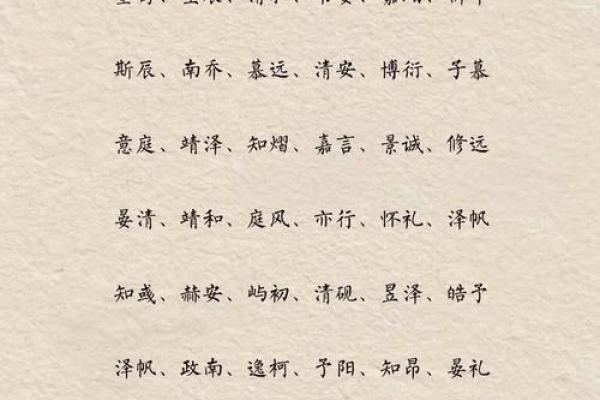 斯辰、南乔、慕远、清安、博衍、子慕
意庭、靖泽、知熠、嘉言、景诚、修远
晏清、靖和、庭风、亦行、怀礼、泽帆
知彧、赫安、屿初、清砚、昱泽、皓予
泽帆、政南、逸柯、予阳、知昂、晏礼